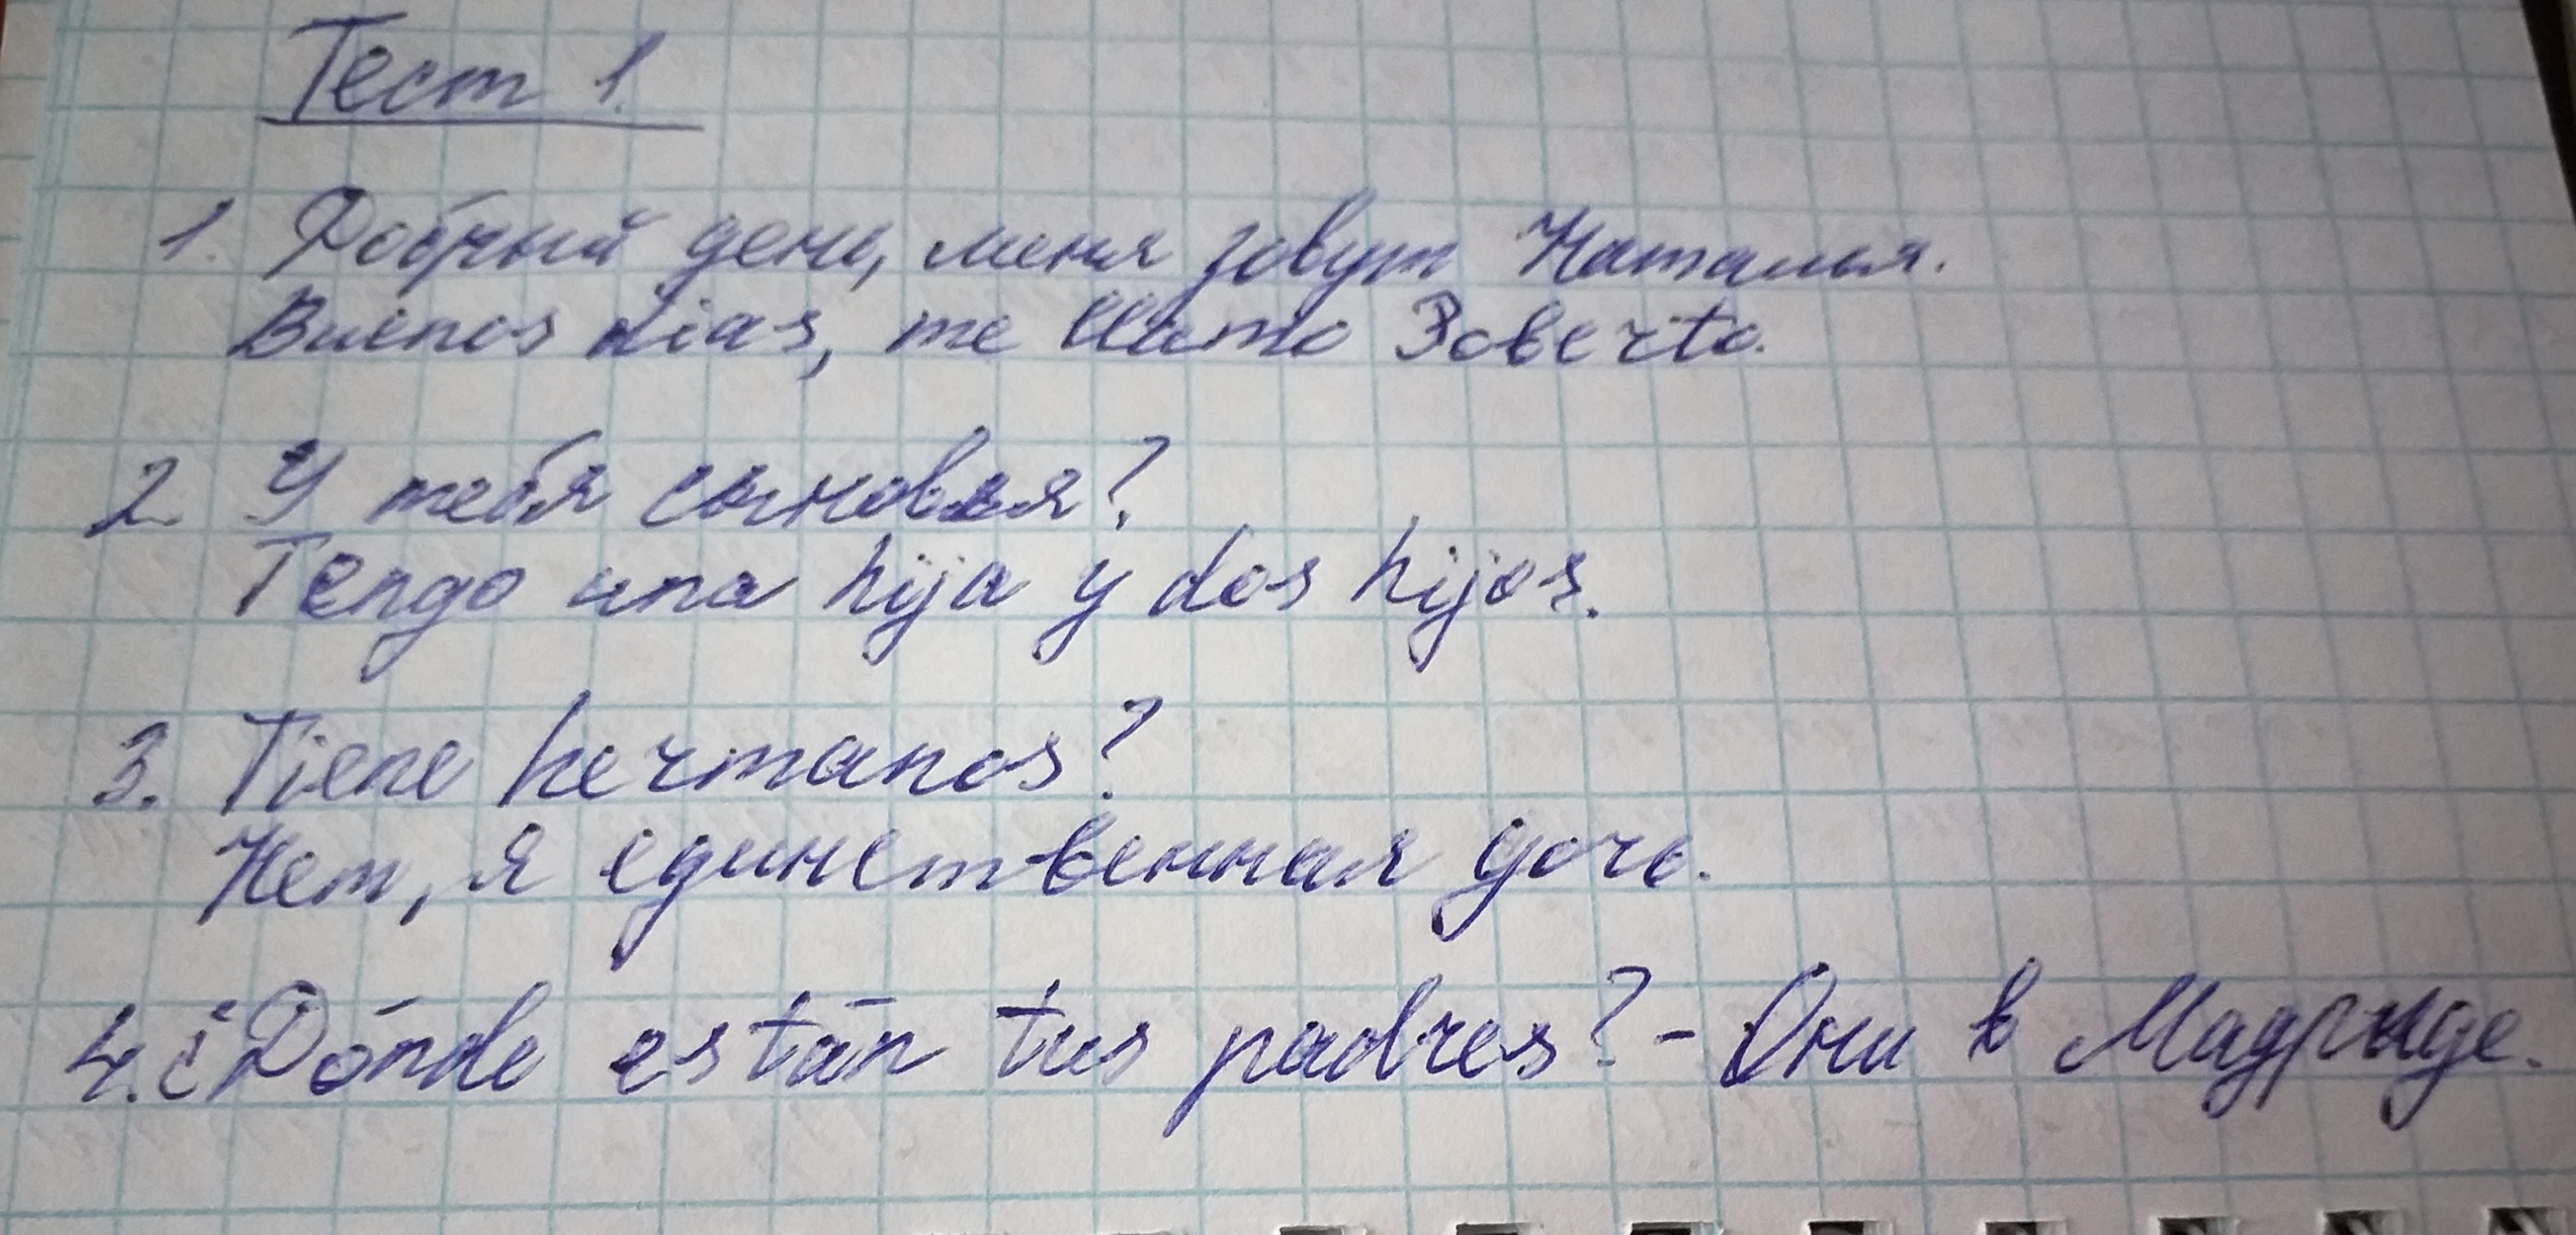 Тест 1.
1. Добрый день, меня зовут Наталья.
Buenos dias, me llamo Roberto.
2. У тебя сыновья?
Tengo una hija y dos hijos.
3. Tiene hermanos?
Нет, я единственная дочь.
4. ¿Dónde están tus padres? - Они в Мадриде.